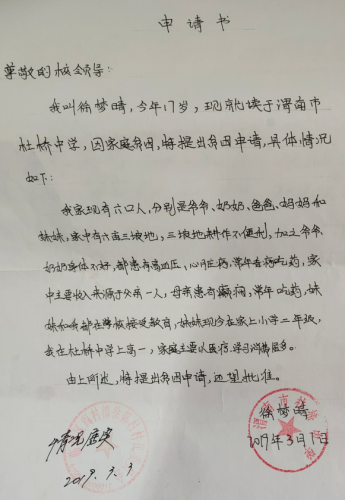 申请书
尊敬的校领导:
我叫徐梦晴,今年17岁,现就读于渭南市
杜桥中学,因家庭贫困,特提出贫困申请,具体情况
如下:
我家现有六口人,分别是爷爷、奶奶、爸爸、妈妈和
妹妹,家中有六亩三坡地,三坡地耕作不便利,加之爷爷
奶奶身体不好,都患有高血压、心脏病,常年看病吃药,家
中主要收入来源于父亲一人,母亲患有癫痫,常年吃药,妹
妹和我都在学校接受教育,妹妹现今在家上小学二年级,
我在杜桥中学上高一,家庭主要以医疗、学习消费居多。
由上所述,特提出贫困申请,还望批准。
徐梦晴
2019年3月1日
情况属实
2019.3.3
渭南市杜桥